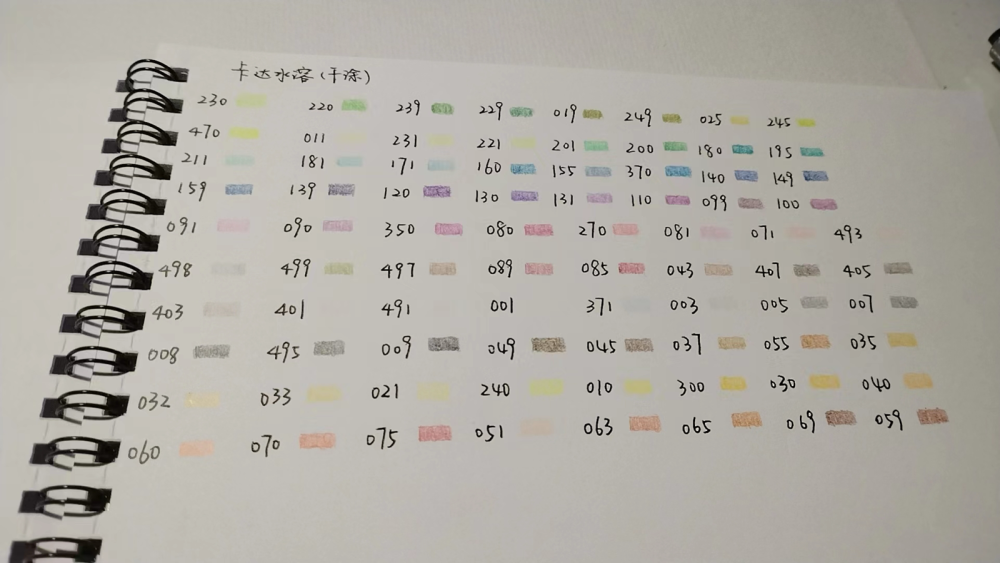 卡达水溶(干涂)
230 220 239 229 019 249 025 245
470 011 231 221 201 200 180 195
211 181 171 160 155 370 140 149
159 139 120 130 131 110 099 100
091 090 350 080 270 081 071 493
498 499 497 089 085 043 407 405
403 401 491 001 371 003 005 007
008 495 009 049 045 037 055 035
032 033 021 240 010 300 030 040
060 070 075 051 063 065 069 059